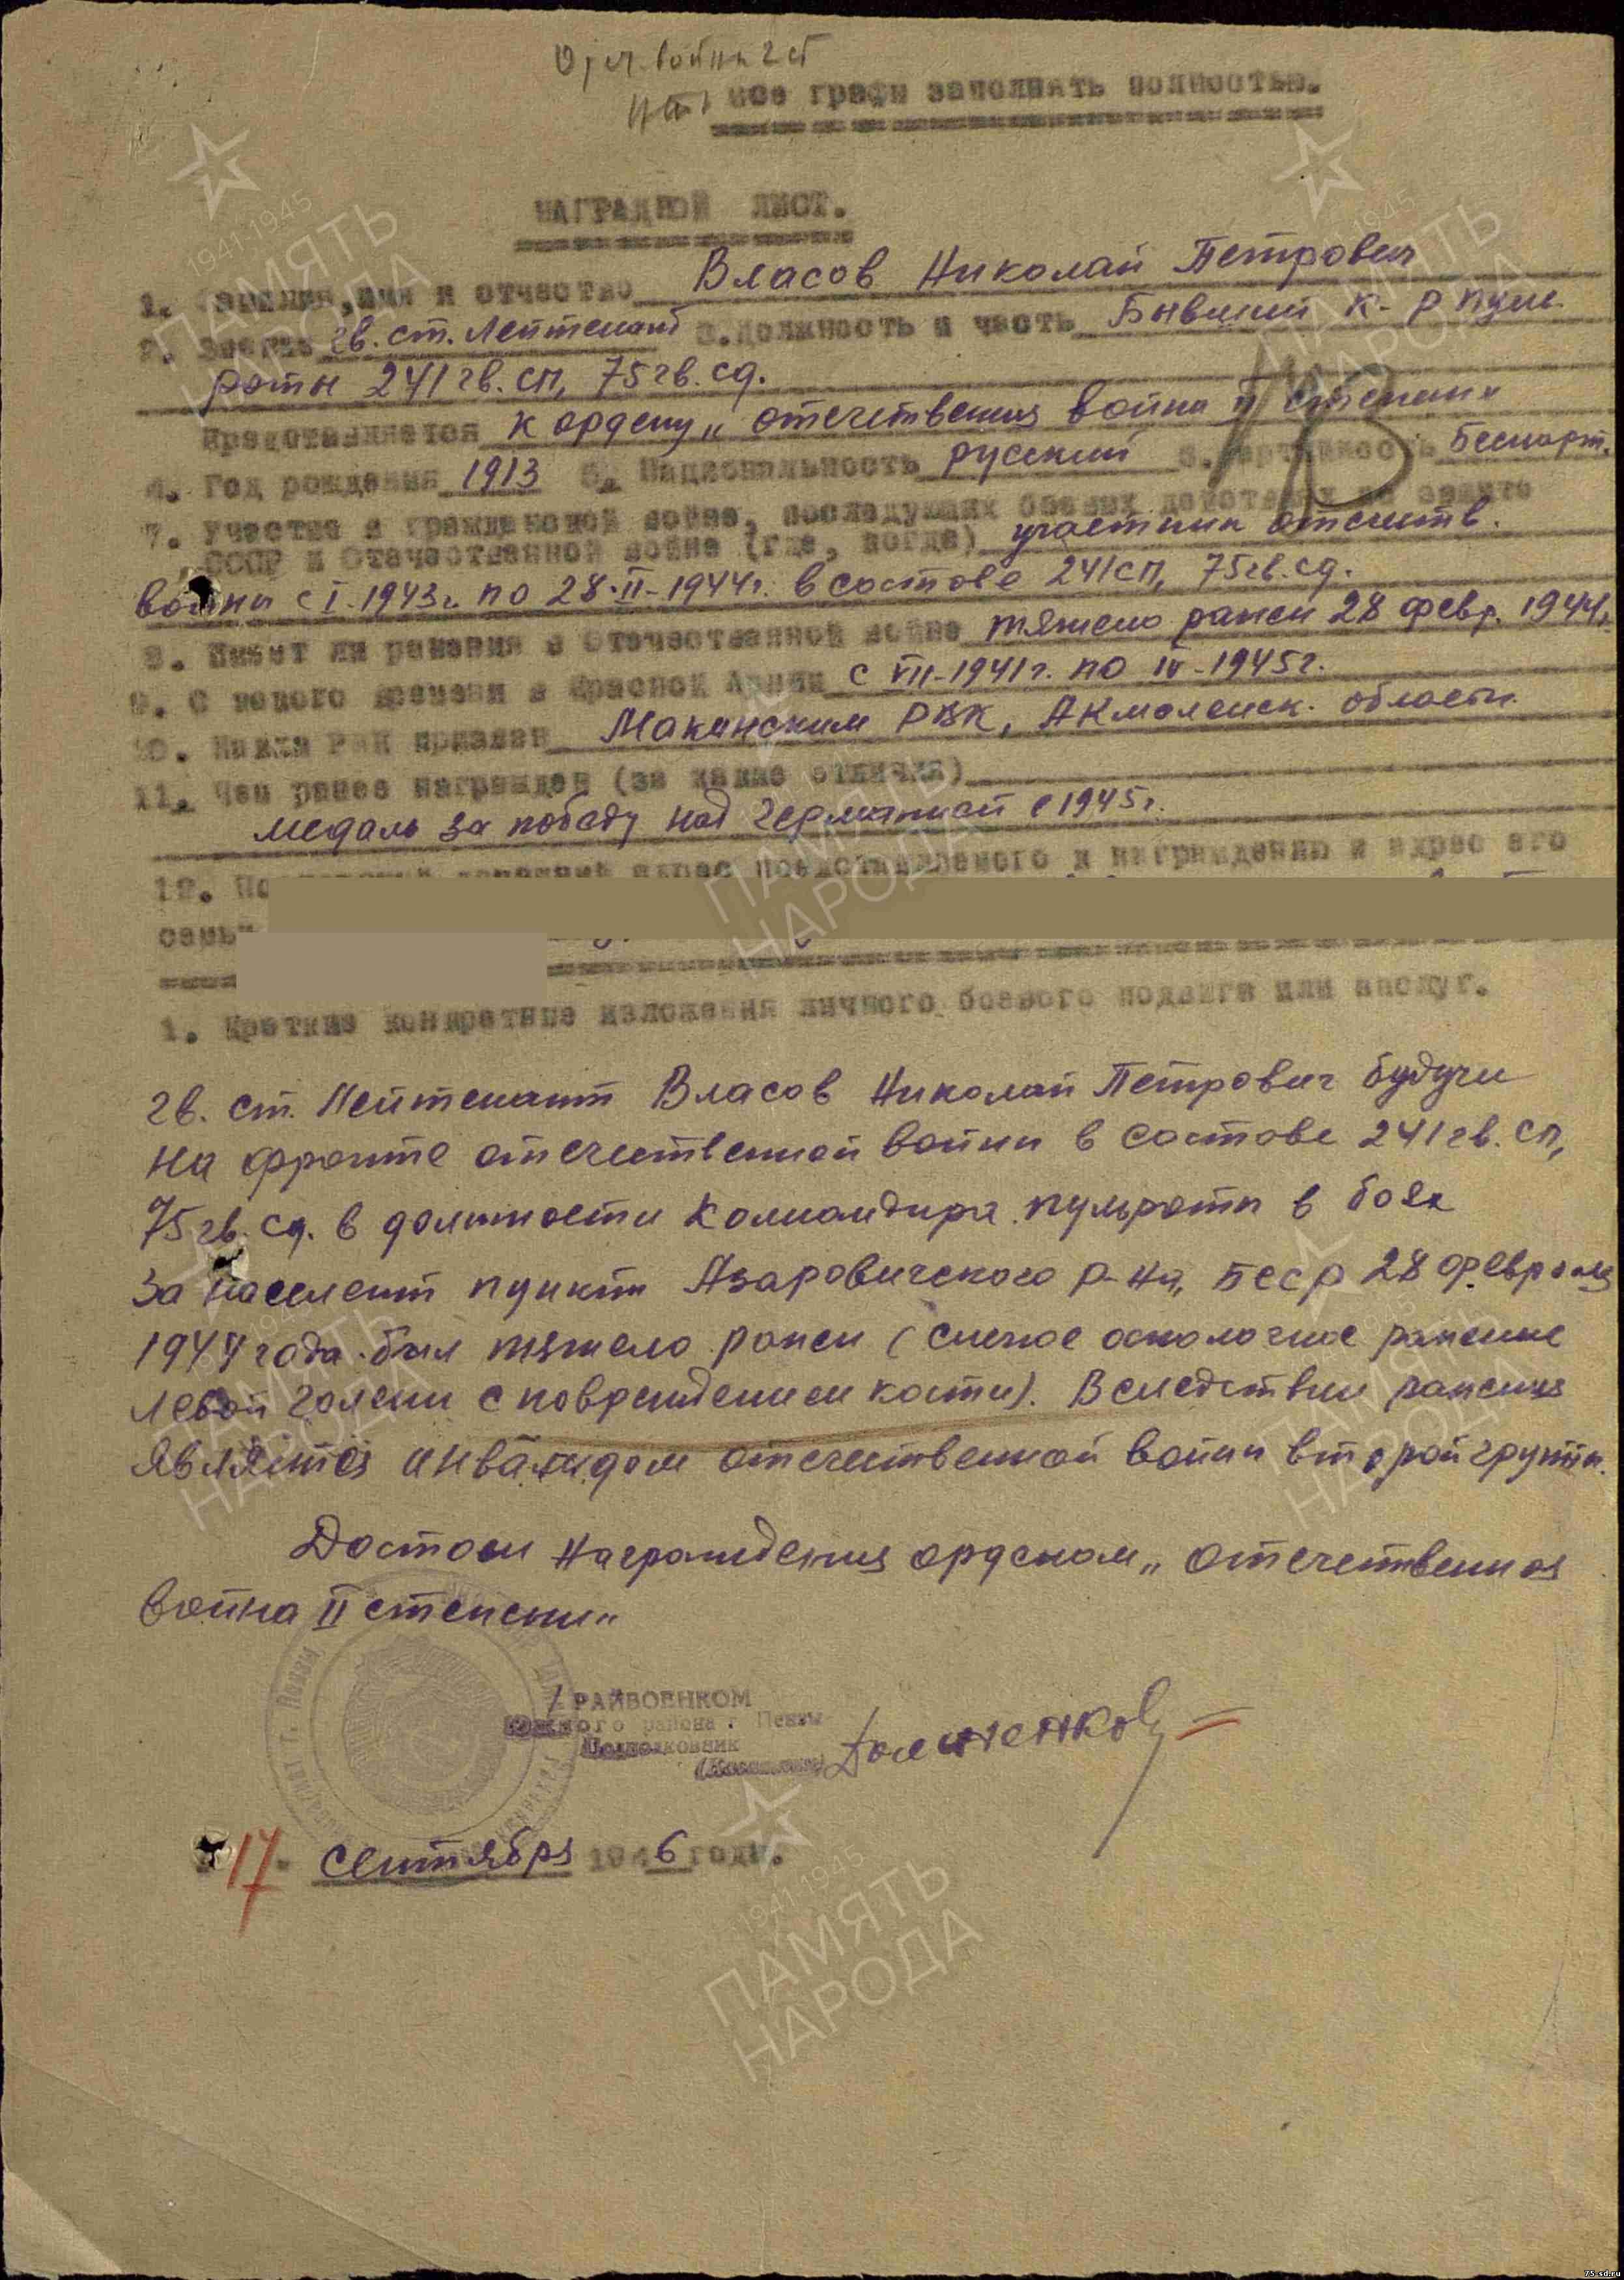 От. война 2 ст
все графы заполнять полностью.
НАГРАДНОЙ ЛИСТ.
1. Фамилия, имя и отчество Власов Николай Петрович
2. Звание гв. ст. Лейтенант 3. Должность и часть Бывший к-р пуль.
роты 241 гв. сп, 75 гв. сд.
Представляется к ордену „отечественная война II степени"
4. Год рождения 1913 5. Национальность русский 6. Партийность Беспарт.
7. Участие в гражданской войне, последующих боевых действиях по защите
СССР и Отечественной войне (где, когда) участник отечеств.
войны с I-1943г. по 28-II-1944г. в составе 241 сп, 75 гв. сд.
8. Имеет ли ранения в Отечественной войне тяжело ранен 28 февр. 1944г.
9. С какого времени в Красной Армии с VII-1941г. по IV-1945г.
10. Каким РВК призван Макинским РВК, Акмоленск. области.
11. Чем ранее награжден (за какие отличия)
медаль за победу над Германией в 1945г.
12. адрес представляемого к награждению и адрес его
семьи
1. Краткие конкретные изложения личного боевого подвига или заслуг.
гв. ст. Лейтенант Власов Николай Петрович будучи
на фронте отечественной войны в составе 241 гв. сп,
75 гв. сд. в должности командира пульроты в боях
за населент пункты Азаровичского р-на, БССР 28 февраля
1944 года был тяжело ранен (слепое осколочное ранение
левой голени с повреждением кости). Вследствии ранения
является инвалидом отечественной войны второй группы.
Достоин награждения орденом „отечественная
война II степени"
РАЙВОЕНКОМ
Южного района г. Пензы
Подполковник
17 сентября 1946 года.
1941-1945
ПАМЯТЬ
НАРОДА
75-sd.ru